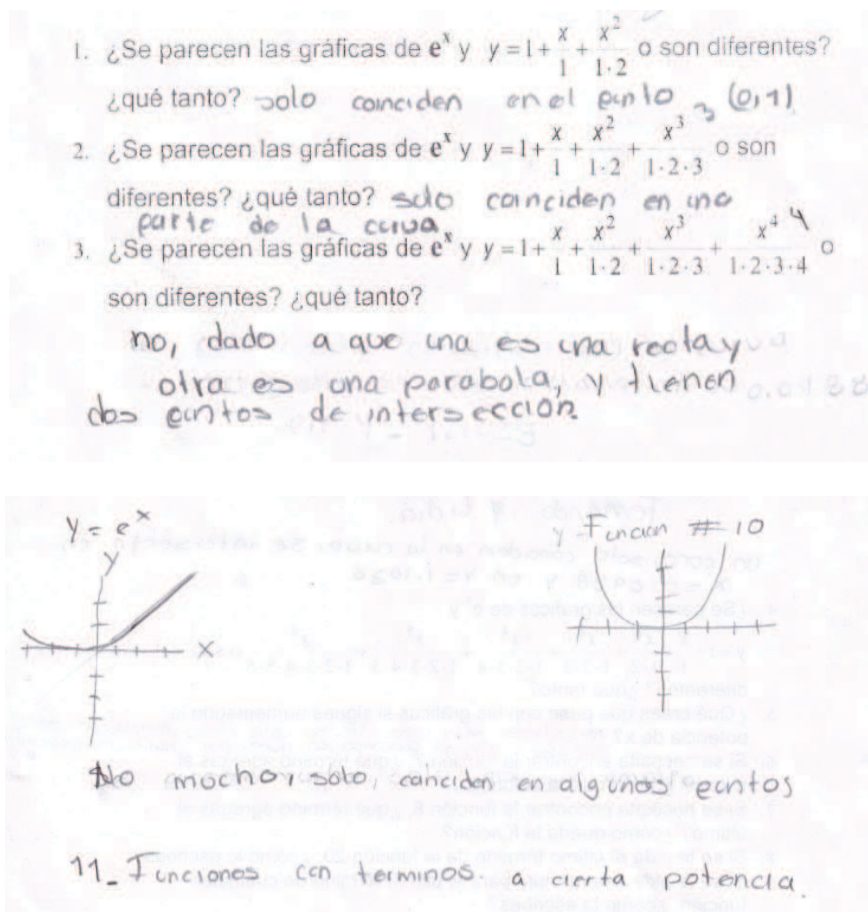 1. ¿Se parecen las gráficas de e^x y y = 1 + x/1 + x^2/1·2 o son diferentes?
¿qué tanto? solo coinciden en el punto (0,1)
2. ¿Se parecen las gráficas de e^x y y = 1 + x/1 + x^2/1·2 + x^3/1·2·3 o son
diferentes? ¿qué tanto? solo coinciden en una
parte de la curva
3. ¿Se parecen las gráficas de e^x y y = 1 + x/1 + x^2/1·2 + x^3/1·2·3 + x^4/1·2·3·4 o
son diferentes? ¿qué tanto?
no, dado a que una es una recta y
otra es una parabola, y tienen
dos puntos de intersección
y = e^x
y
x
y Funcion # 10
No mucho, solo, coinciden en algunos puntos
11_ Funciones con terminos. a cierta potencia.